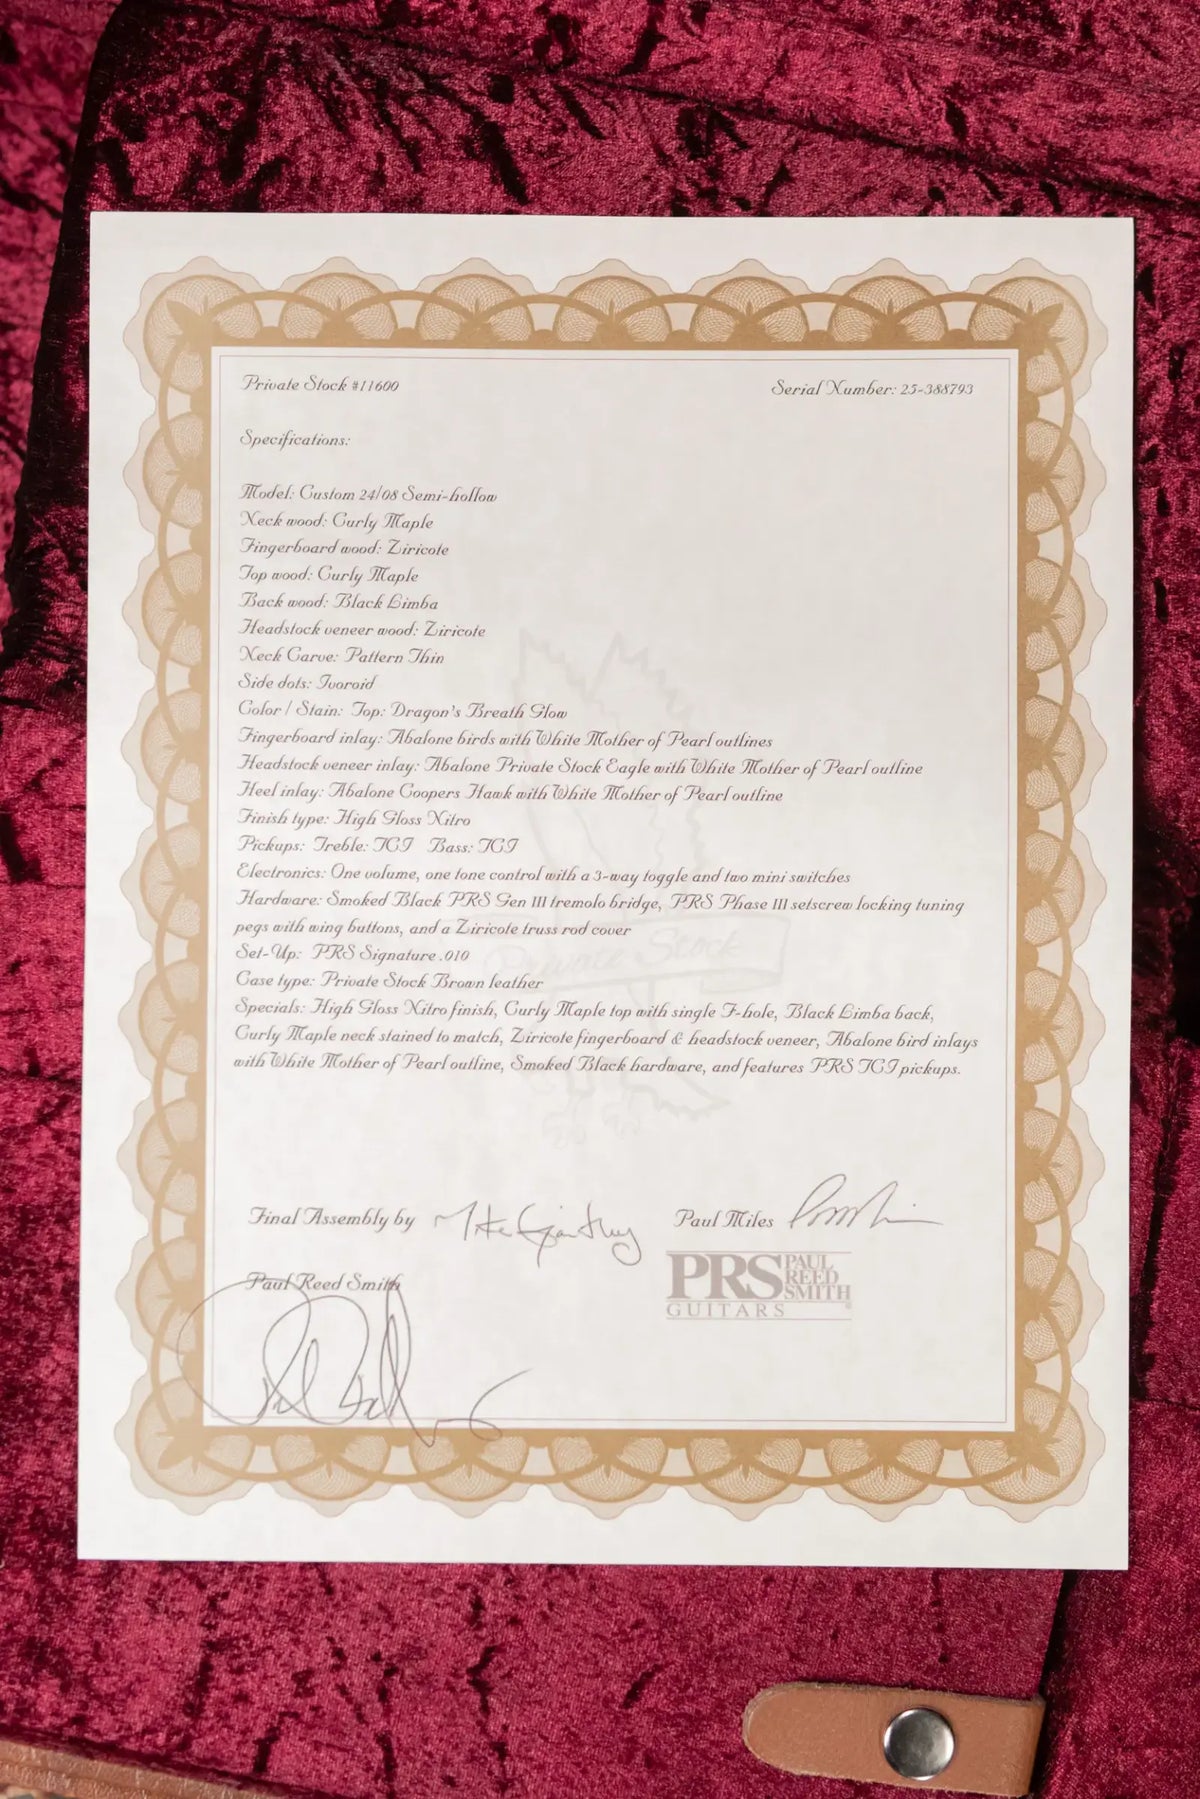 Private Stock #11600
Serial Number: 25-388793
Specifications:
Model: Custom 24/08 Semi-hollow
Neck wood: Curly Maple
Fingerboard wood: Ziricote
Top wood: Curly Maple
Back wood: Black Limba
Headstock veneer wood: Ziricote
Neck Carve: Pattern Thin
Side dots: Ivoroid
Color / Stain: Top: Dragon's Breath Glow
Fingerboard inlay: Abalone birds with White Mother of Pearl outlines
Headstock veneer inlay: Abalone Private Stock Eagle with White Mother of Pearl outline
Heel inlay: Abalone Coopers Hawk with White Mother of Pearl outline
Finish type: High Gloss Nitro
Pickups: Treble: TCI Bass: TCI
Electronics: One volume, one tone control with a 3-way toggle and two mini switches
Hardware: Smoked Black PRS Gen III tremolo bridge, PRS Phase III setscrew locking tuning
pegs with wing buttons, and a Ziricote truss rod cover
Private Stock
Set-Up: PRS Signature .010
Case type: Private Stock Brown leather
Specials: High Gloss Nitro finish, Curly Maple top with single F-hole, Black Limba back,
Curly Maple neck stained to match, Ziricote fingerboard & headstock veneer, Abalone bird inlays
with White Mother of Pearl outline, Smoked Black hardware, and features PRS TCI pickups.
Final Assembly by
Paul Miles
Paul Reed Smith
PRS PAUL REED SMITH
GUITARS